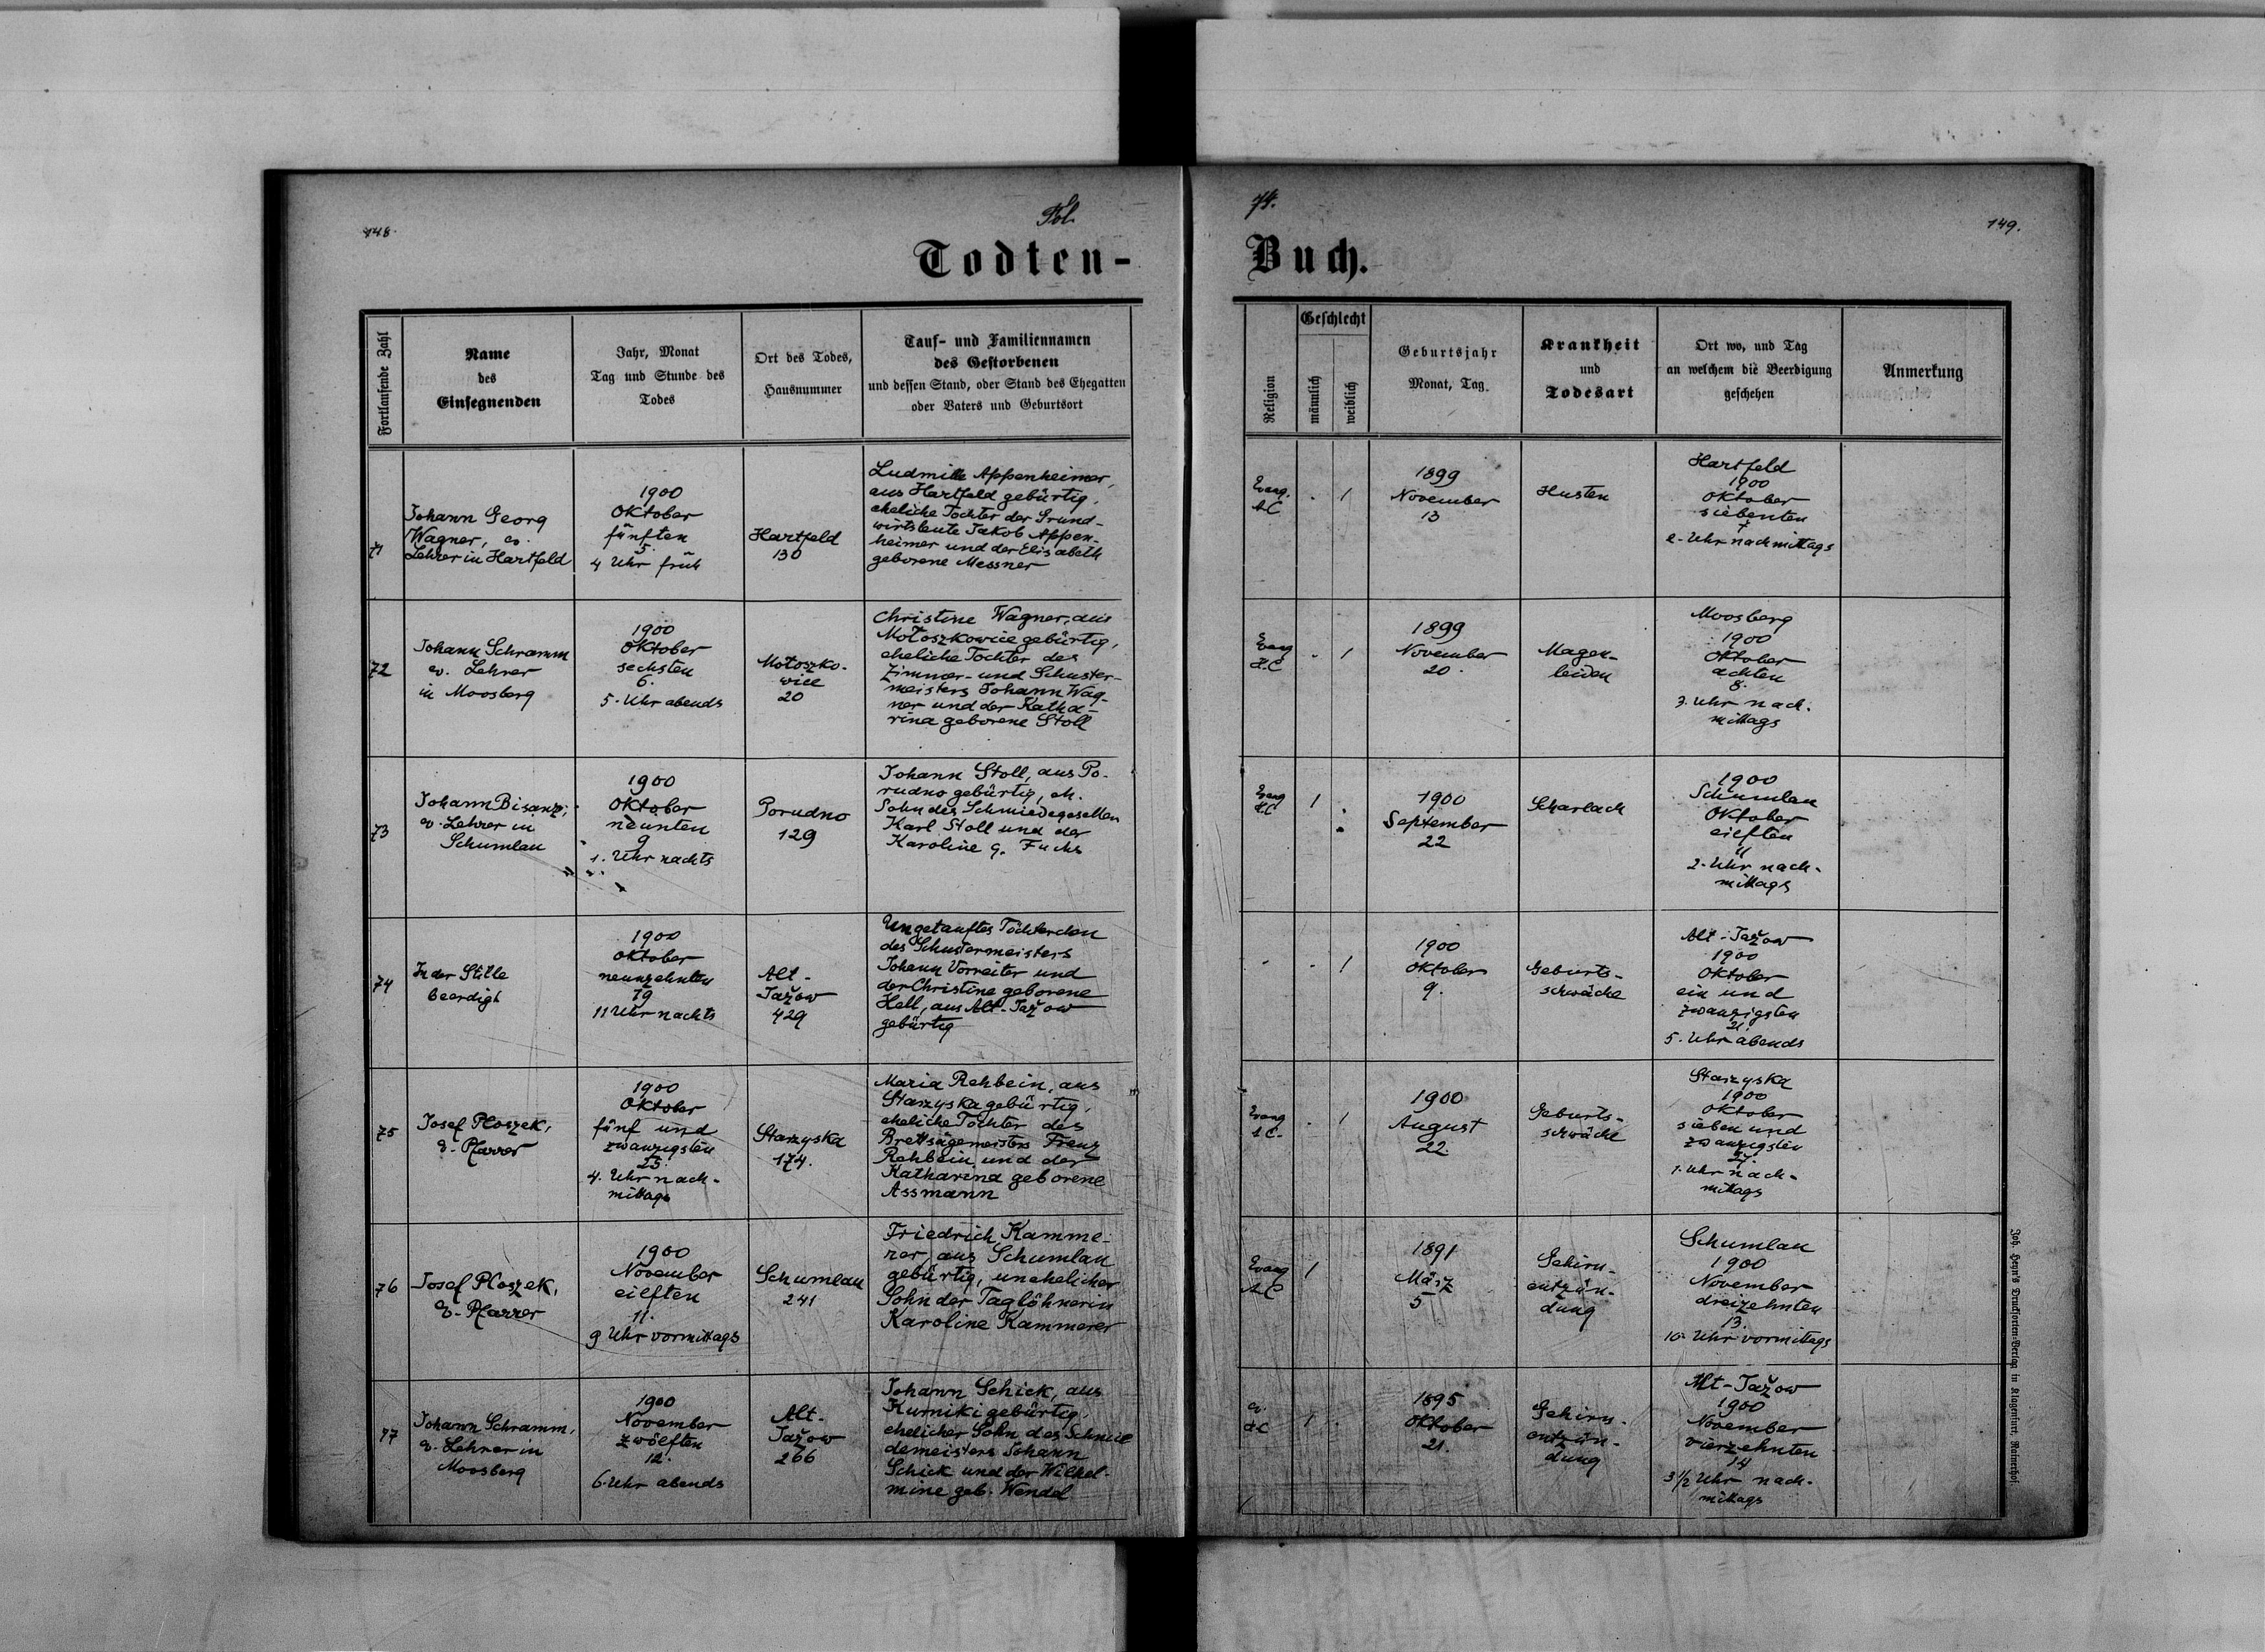 148.
Fol.
74.
149.
Todten-
Buch.
Fortlaufende Zahl
Name
des
Einsegnenden
Jahr, Monat
Tag und Stunde des
Todes
Ort des Todes,
Hausnummer
Tauf- und Familiennamen
des Gestorbenen
und dessen Stand, oder Stand des Ehegatten
oder Vaters und Geburtsort
Religion
Geschlecht
männlich
weiblich
Geburtsjahr
Monat, Tag.
Krankheit
und
Todesart
Ort wo, und Tag
an welchem die Beerdigung
geschehen
Anmerkung
71
Johann Georg
Wagner, ev.
Lehrer in Hartfeld
1900
Oktober
fünften
5.
4 Uhr früh
Hartfeld
130
Ludmilla Appenheimer,
aus Hartfeld gebürtig,
eheliche Tochter der Grund-
wirtsleute Jakob Appen-
heimer und der Elisabeth
geborene Messner
Evang.
A.C
. 1
1899
November
13
Husten
Hartfeld
1900
Oktober
siebenten
7
2. Uhr nachmittags
72
Johann Schramm
ev. Lehrer
in Moosberg
1900
Oktober
sechsten
6.
5. Uhr abends
Mołoszko-
wice
20
Christine Wagner, aus
Mołoszkowice gebürtig,
eheliche Tochter des
Zimmer- und Schuster-
meisters Johann Wag-
ner und der Katha-
rina geborene Stoll
Evang
H.C
. 1
1899
November
20.
Magen-
leiden
Moosberg
1900
Oktober
achten
8.
3. Uhr nach-
mittags
73
Johann Bisanz,
ev. Lehrer in
Schumlau
1900
Oktober
neunten
9
1. Uhr nachts
Porudno
129
Johann Stoll, aus Po-
rudno gebürtig, eh.
Sohn des Schmiedegesellen
Karl Stoll und der
Karoline g. Fuchs
Evang
H.C
1 .
1900
September
22
Scharlach
1900
Schumlau
Oktober
eilften
11
2. Uhr nach-
mittags
74
In der Stille
beerdigt
1900
Oktober
neunzehnten
19
11 Uhr nachts
Alt-
Jażow
429
Ungetauftes Töchterchen
des Schustermeisters
Johann Vorreiter und
der Christine geborene
Hell, aus Alt-Jażow
gebürtig
. . 1
1900
Oktober
9.
Geburts-
schwäche
Alt-Jażow
1900
Oktober
ein und
zwanzigsten
21.
5. Uhr abends
75
Josef Ploszek,
ev. Pfarrer
1900
Oktober
fünf und
zwanzigsten
25.
4. Uhr nach-
mittags
Starzyska
174.
Maria Rehbein, aus
Starzyska gebürtig,
eheliche Tochter des
Brettsägemeisters Franz
Rehbein und der
Katharina geborene
Assmann
Evang
A.C.
. 1
1900
August
22.
Geburts-
schwäche
Starzyska
1900
Oktober
sieben und
zwanzigsten
27.
1. Uhr nach-
mittags
76
Josef Ploszek,
ev. Pfarrer
1900
November
eilften
11.
9 Uhr vormittags
Schumlau
241
Friedrich Kamme-
rer, aus Schumlau
gebürtig, unehelicher
Sohn der Taglöhnerin
Karoline Kammerer
Evang
A.C
1
1891
März
5
Gehirn-
entzün-
dung
Schumlau
1900
November
dreizehnten
13.
10. Uhr vormittags
77
Johann Schramm,
ev. Lehrer in
Moosberg
1900
November
zwölften
12.
6. Uhr abends
Alt-
Jażow
266
Johann Schick, aus
Kurniki gebürtig,
ehelicher Sohn des Schmie
demeisters Johann
Schick und der Wilhel-
mine geb. Wendel
ev.
H.C
1 .
1895
Oktober
21.
Gehirn-
entzün-
dung
Alt-Jażow
1900
November
vierzehnten
14
3 1/2 Uhr nach-
mittags
Joh. Heyn's Drucksorten-Verlag in Klagenfurt, Rainerhof